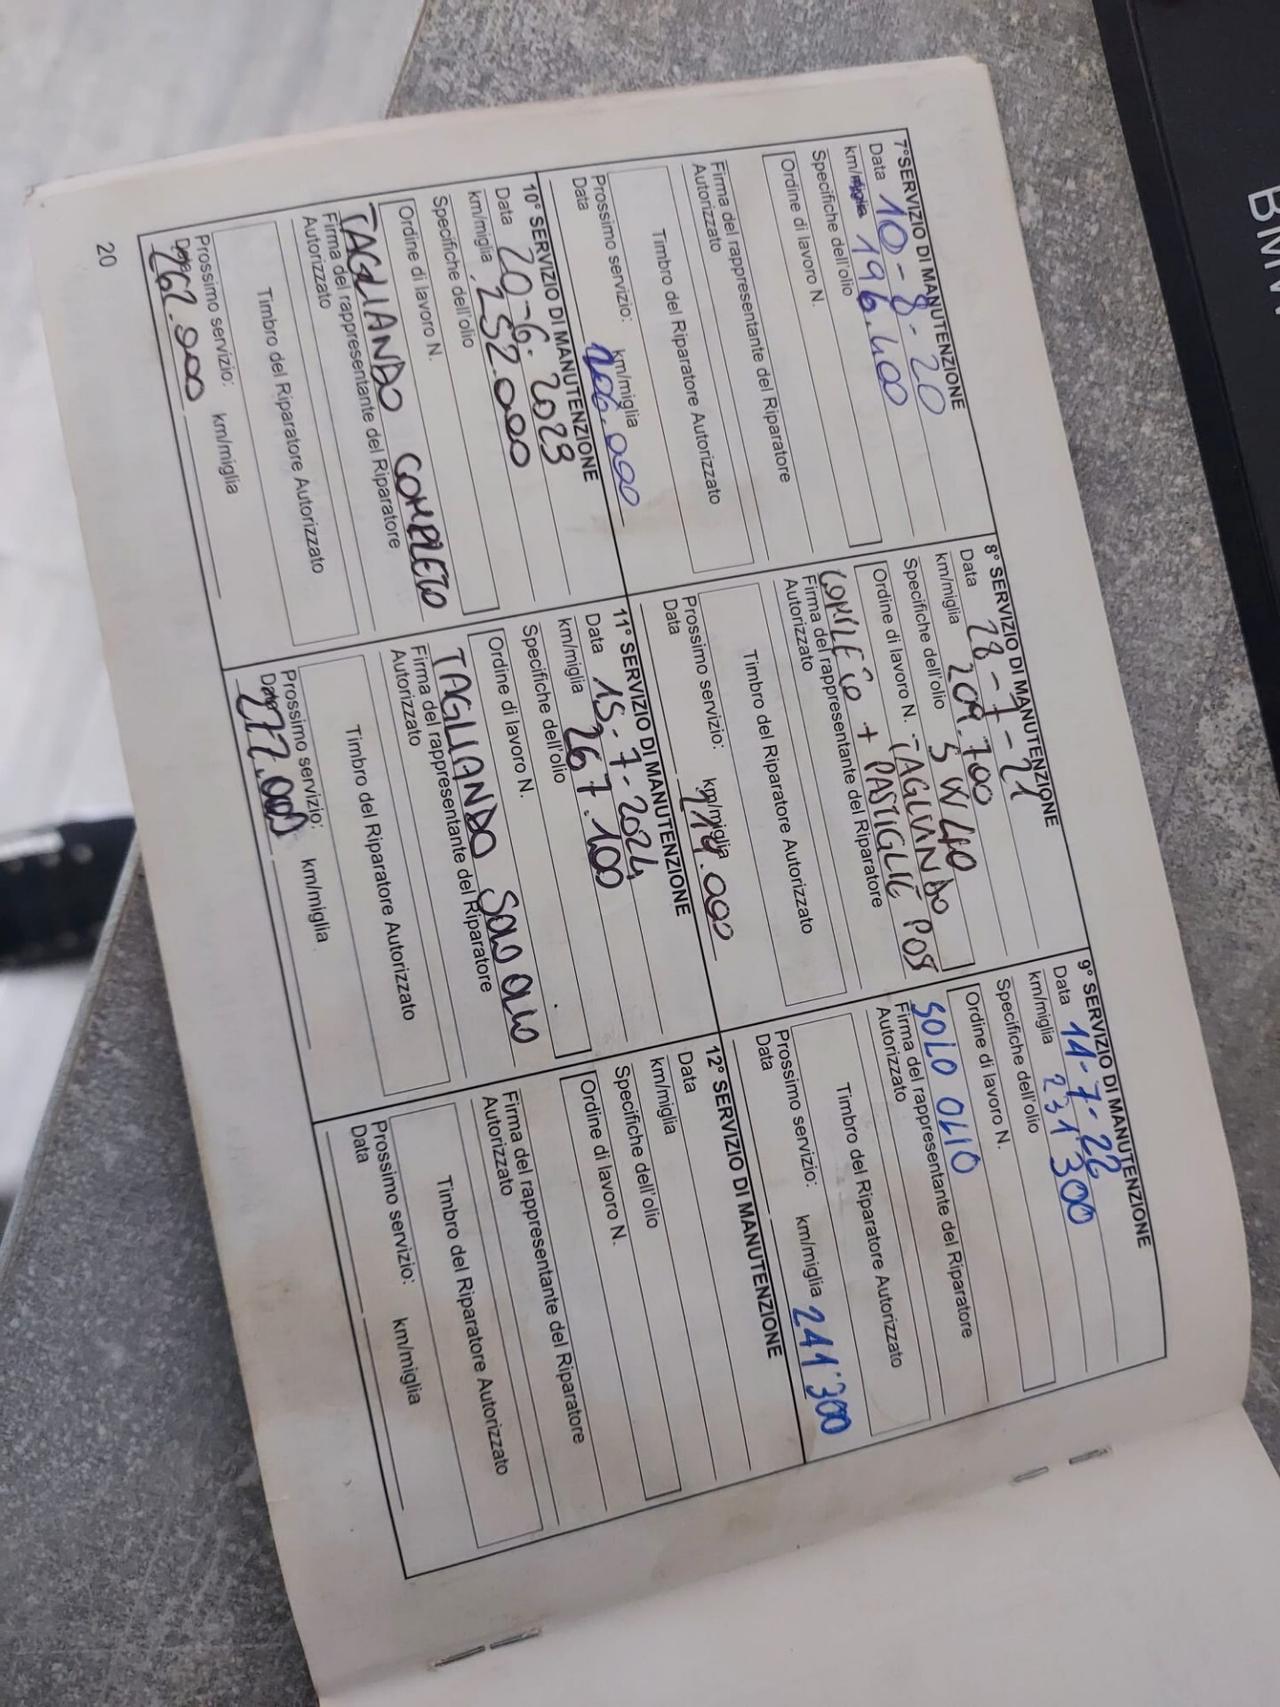 7° SERVIZIO DI MANUTENZIONE
Data 10-8-20
km/miglia 196.400
Specifiche dell'olio
Ordine di lavoro N.
Firma del rappresentante del Riparatore
Autorizzato
Timbro del Riparatore Autorizzato
Prossimo servizio: km/miglia
Data 206.000
8° SERVIZIO DI MANUTENZIONE
Data 28-7-21
km/miglia 209.700
Specifiche dell'olio 5W40
Ordine di lavoro N. TAGLIANDO
COMPLETO + PASTIGLIE POS
Firma del rappresentante del Riparatore
Autorizzato
Timbro del Riparatore Autorizzato
Prossimo servizio: km/miglia
Data 219.000
9° SERVIZIO DI MANUTENZIONE
Data 14-7-22
km/miglia 231'300
Specifiche dell'olio
Ordine di lavoro N.
SOLO OLIO
Firma del rappresentante del Riparatore
Autorizzato
Timbro del Riparatore Autorizzato
Prossimo servizio: km/miglia 241'300
Data
10° SERVIZIO DI MANUTENZIONE
Data 20-6-2023
km/miglia 252.000
Specifiche dell'olio
Ordine di lavoro N.
TAGLIANDO COMPLETO
Firma del rappresentante del Riparatore
Autorizzato
Timbro del Riparatore Autorizzato
Prossimo servizio: km/miglia
Data 262.000
11° SERVIZIO DI MANUTENZIONE
Data 15-7-2024
km/miglia 267.100
Specifiche dell'olio
Ordine di lavoro N.
TAGLIANDO SOLO OLIO
Firma del rappresentante del Riparatore
Autorizzato
Timbro del Riparatore Autorizzato
Prossimo servizio: km/miglia
Data 277.000
12° SERVIZIO DI MANUTENZIONE
Data
km/miglia
Specifiche dell'olio
Ordine di lavoro N.
Firma del rappresentante del Riparatore
Autorizzato
Timbro del Riparatore Autorizzato
Prossimo servizio: km/miglia
Data
20
BMW